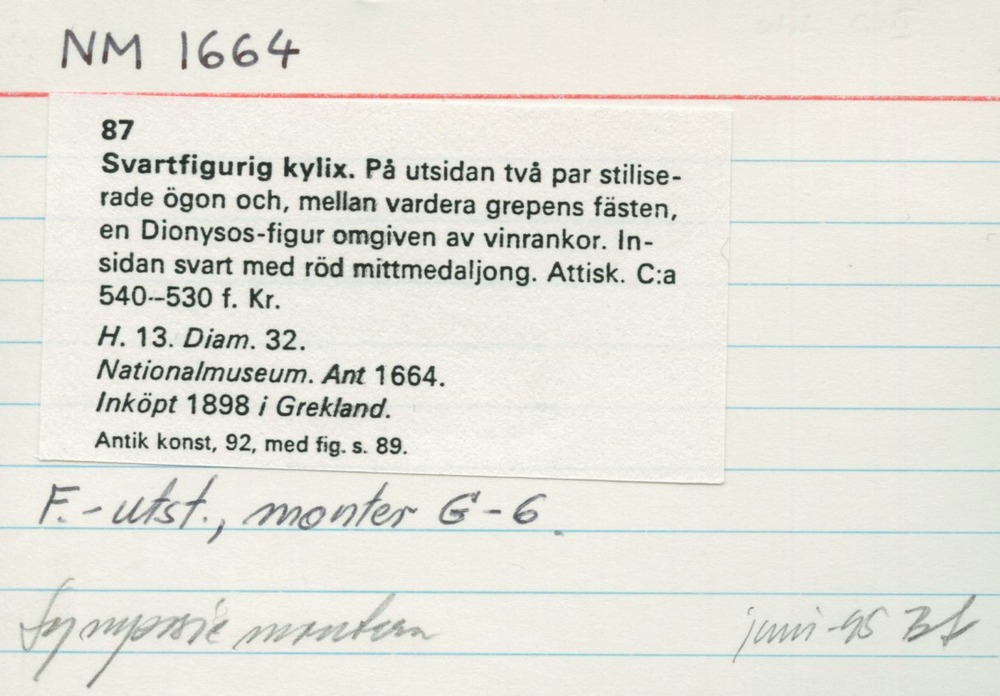 NM 1664
87
Svartfigurig kylix. På utsidan två par stilise-
rade ögon och, mellan vardera grepens fästen,
en Dionysos-figur omgiven av vinrankor. In-
sidan svart med röd mittmedaljong. Attisk. C:a
540--530 f. Kr.
H. 13. Diam. 32.
Nationalmuseum. Ant 1664.
Inköpt 1898 i Grekland.
Antik konst, 92, med fig. s. 89.
F.-utst., monter G-6.
Symposiemontern juni-95